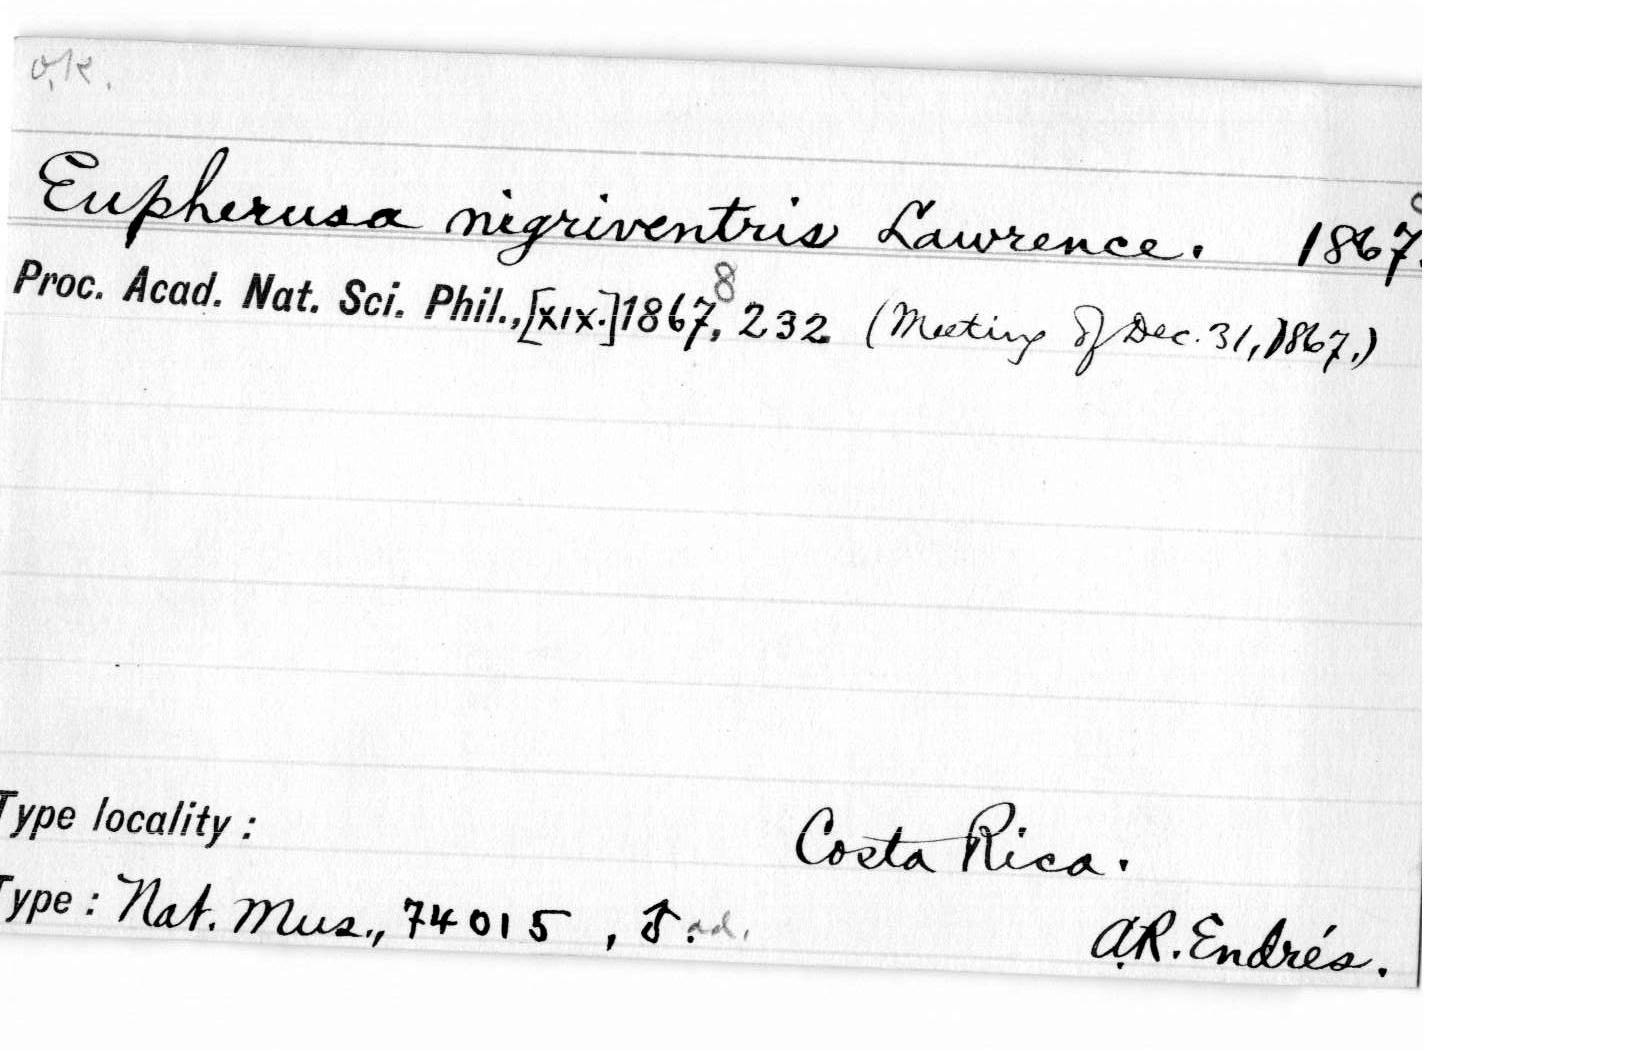 o.k.
Eupherusa nigriventris Lawrence. 1867.
8
Proc. Acad. Nat. Sci. Phil., [XIX.] 1867, 232. (Meeting of Dec. 31, 1867.)
Type locality: Costa Rica.
Type: Nat. Mus., 74015, ♂. ad. A.R. Endrés.